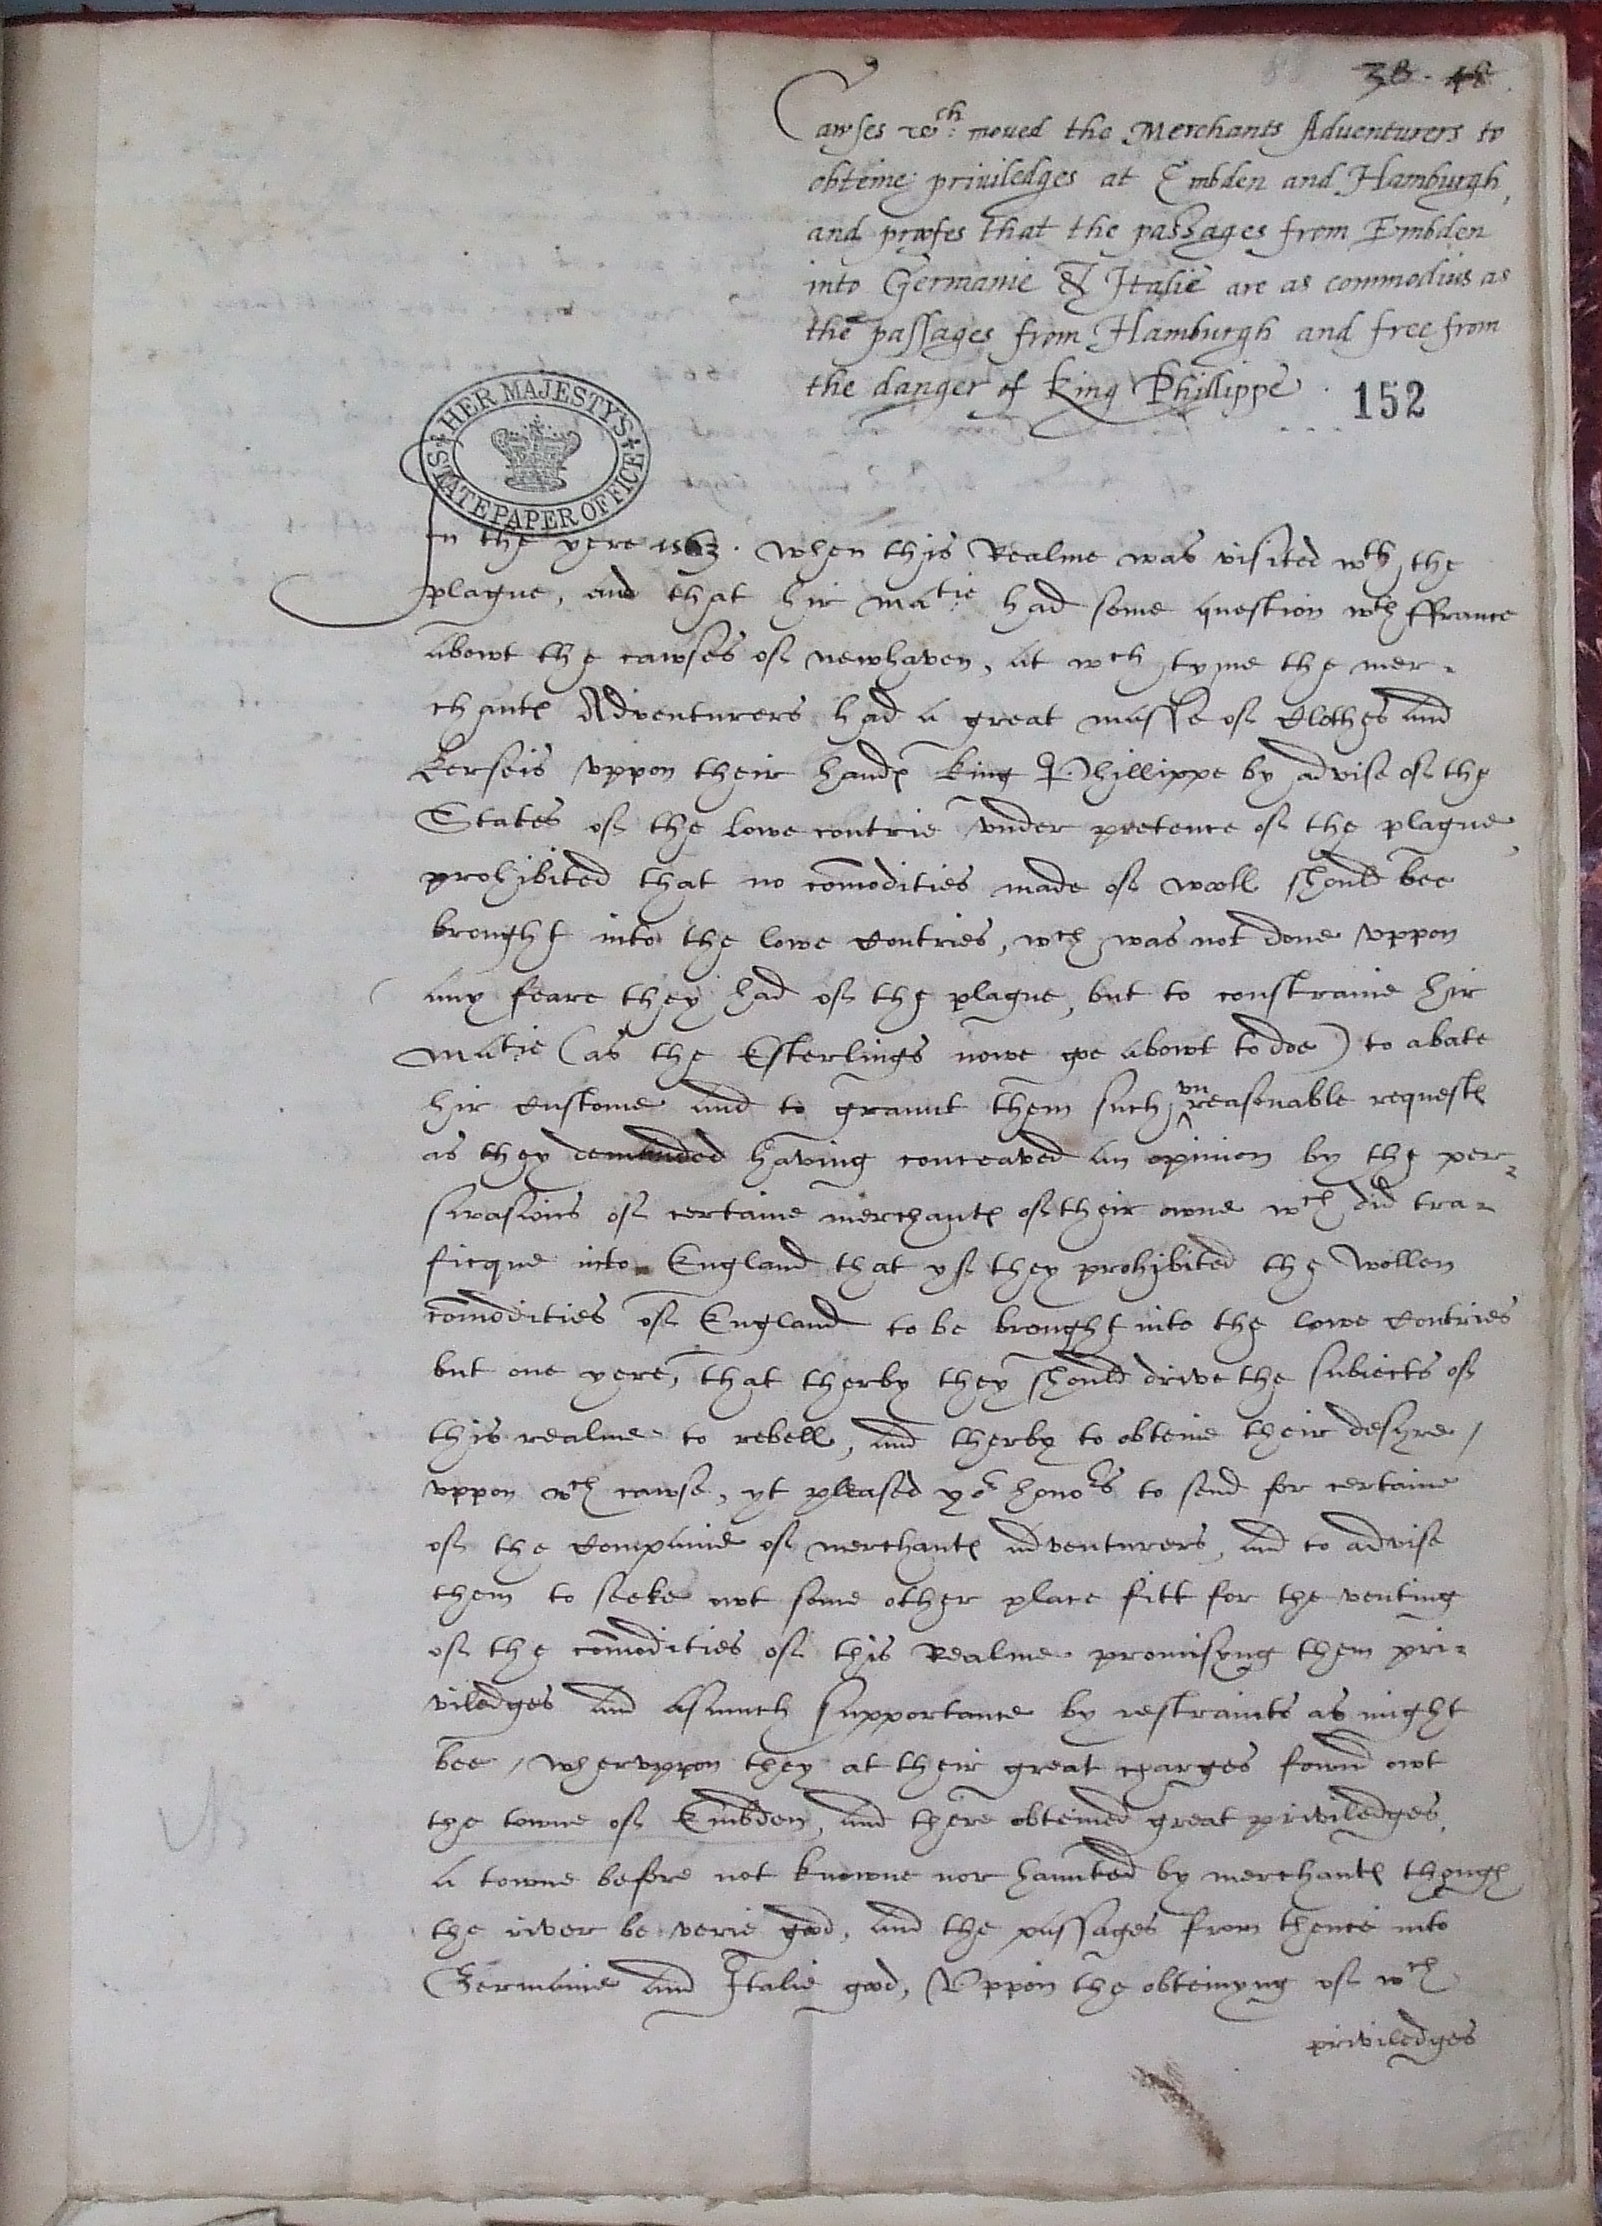 38. 48
Cawses wch: moued the Merchants Aduenturers to
obteine priuiledges at Embden and Hamburgh,
and proofes that the passages from Embden
into Germanie & Italie are as commodius as
the passages from Hamburgh and free from
the danger of King Phillippe.
152
HER MAJESTY'S
STATE PAPER OFFICE
In the yere 1563. when this Realme was visited wth the
plague, and that hir Matie had some question wth ffrance
abowt the cawses of newhaven, at wch tyme the mer-
chantes Adventurers had a great masse of Clothes and
Kerseis vppon their handes King Phillippe by advise of the
States of the lowe contrie vnder pretence of the plague,
prohibited that no comodities made of wooll should bee
brought into the lowe Contries, wch was not done vppon
any feare they had of the plague, but to constraine hir
Matie (as the Esterlings nowe goe abowt to doe) to abate
hir Custome and to graunt them such vnreasonable requestes
as they demanded having conceaved an opinion by the per-
swasions of certaine merchantes of their owne wch did tra-
ficque into England that yf they prohibited the wollen
comodities of England to be brought into the lowe Contries
but one yere, that therby they should drive the subiects of
this realme to rebell, and therby to obteine their desyre,
vppon wch cawse, yt pleased yor honors to send for certaine
of the Companie of merchantes adventurers, and to advise
them to seeke owt some other place fitt for the venting
of the comodities of this Realme promisyng them pri-
viledges and asmuch supportance by restraints as might
bee, whervppon they at their great charges fownd owt
the towne of Embden, and there obteined great priviledges,
a towne before not knowne nor haunted by merchantes though
the river be verie good, and the passages from thence into
Germanie and Italie good, Vppon the obteinyng of wch
priviledges